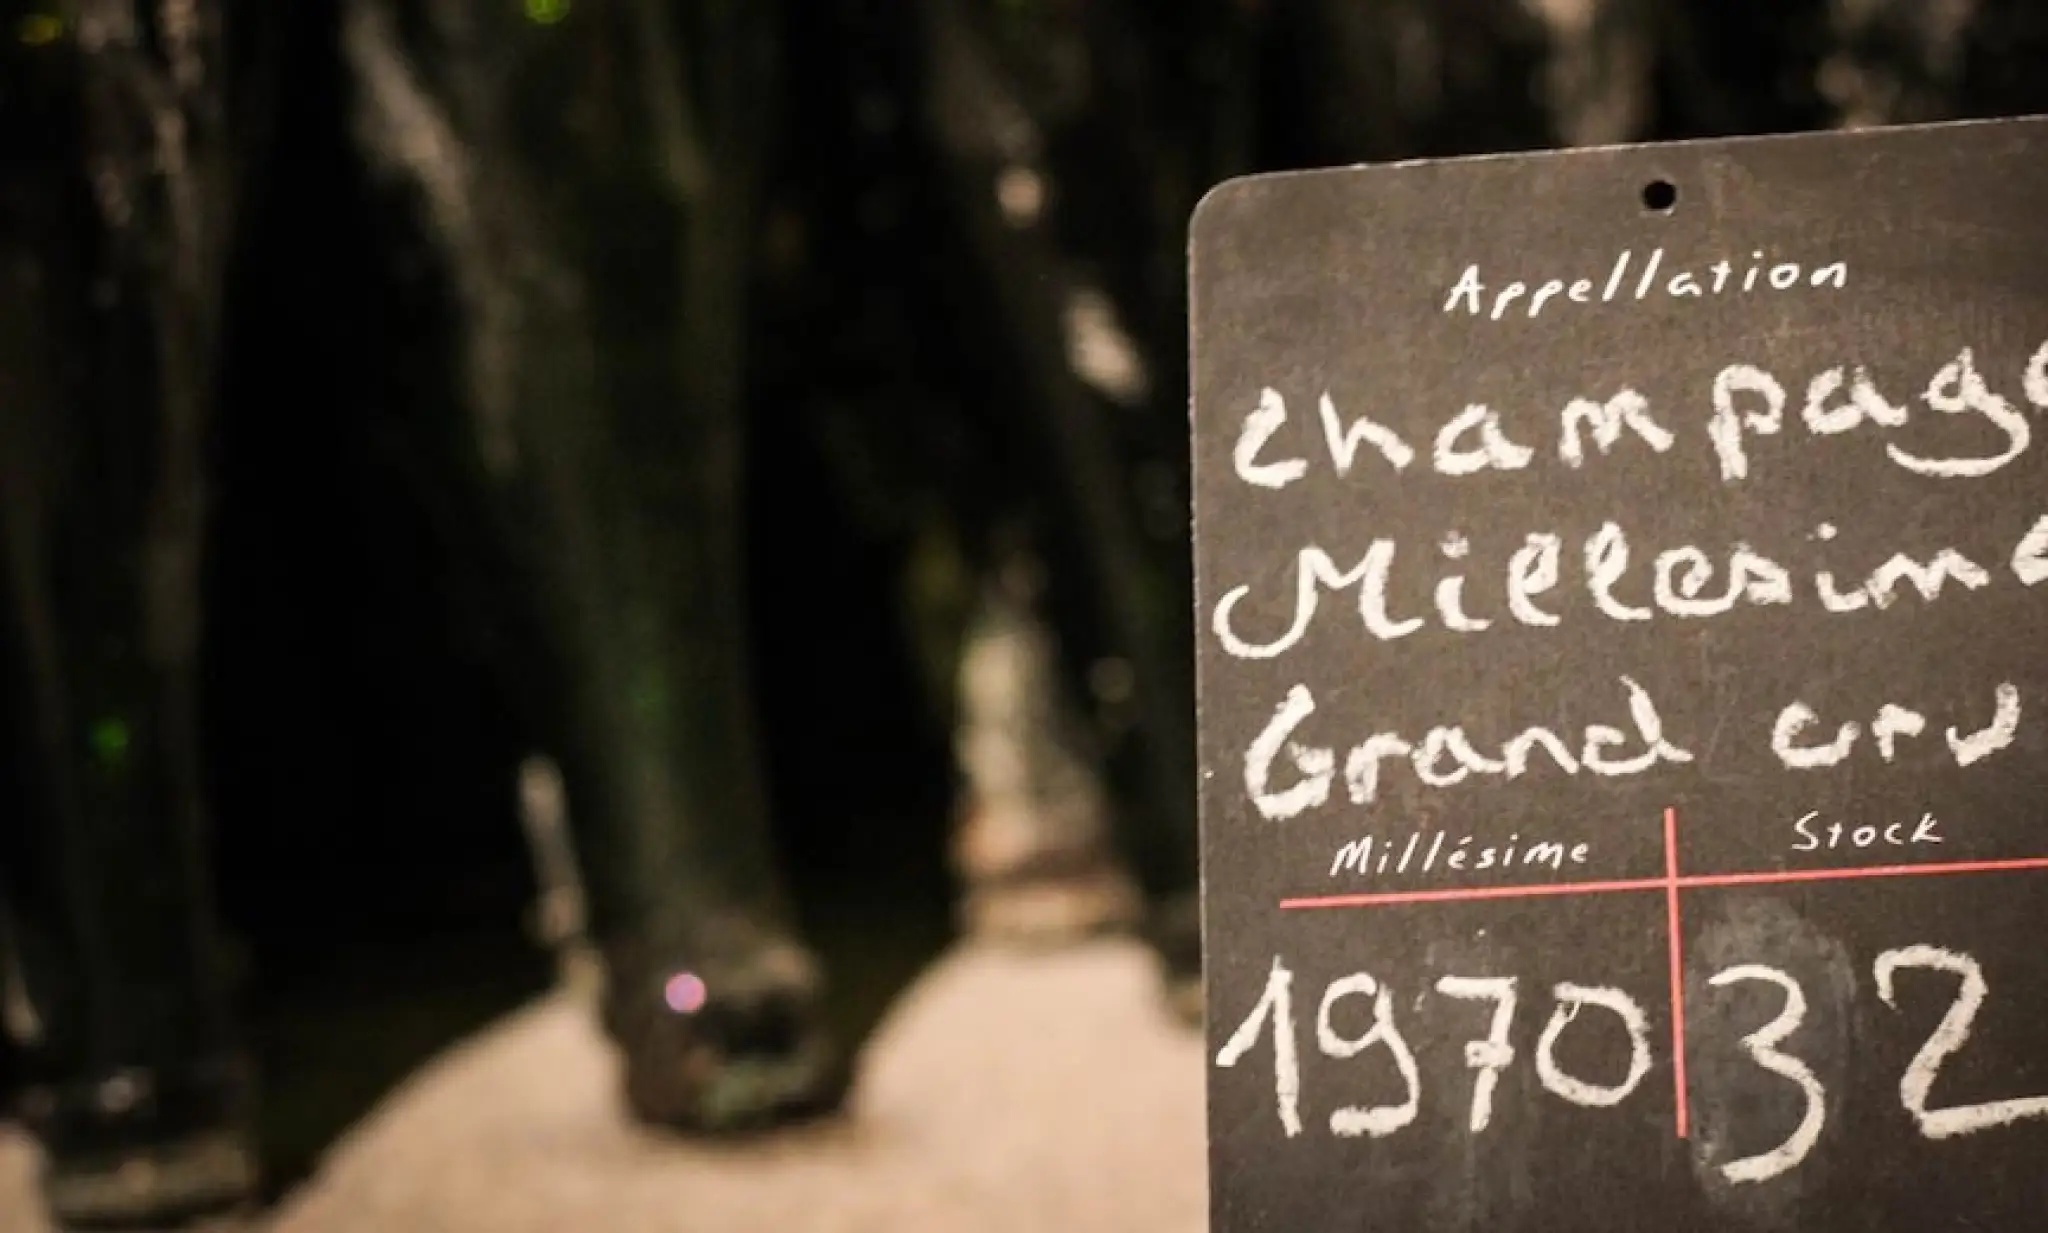 Appellation
Champag
Millesime
Grand cru
Millésime Stock
1970 32